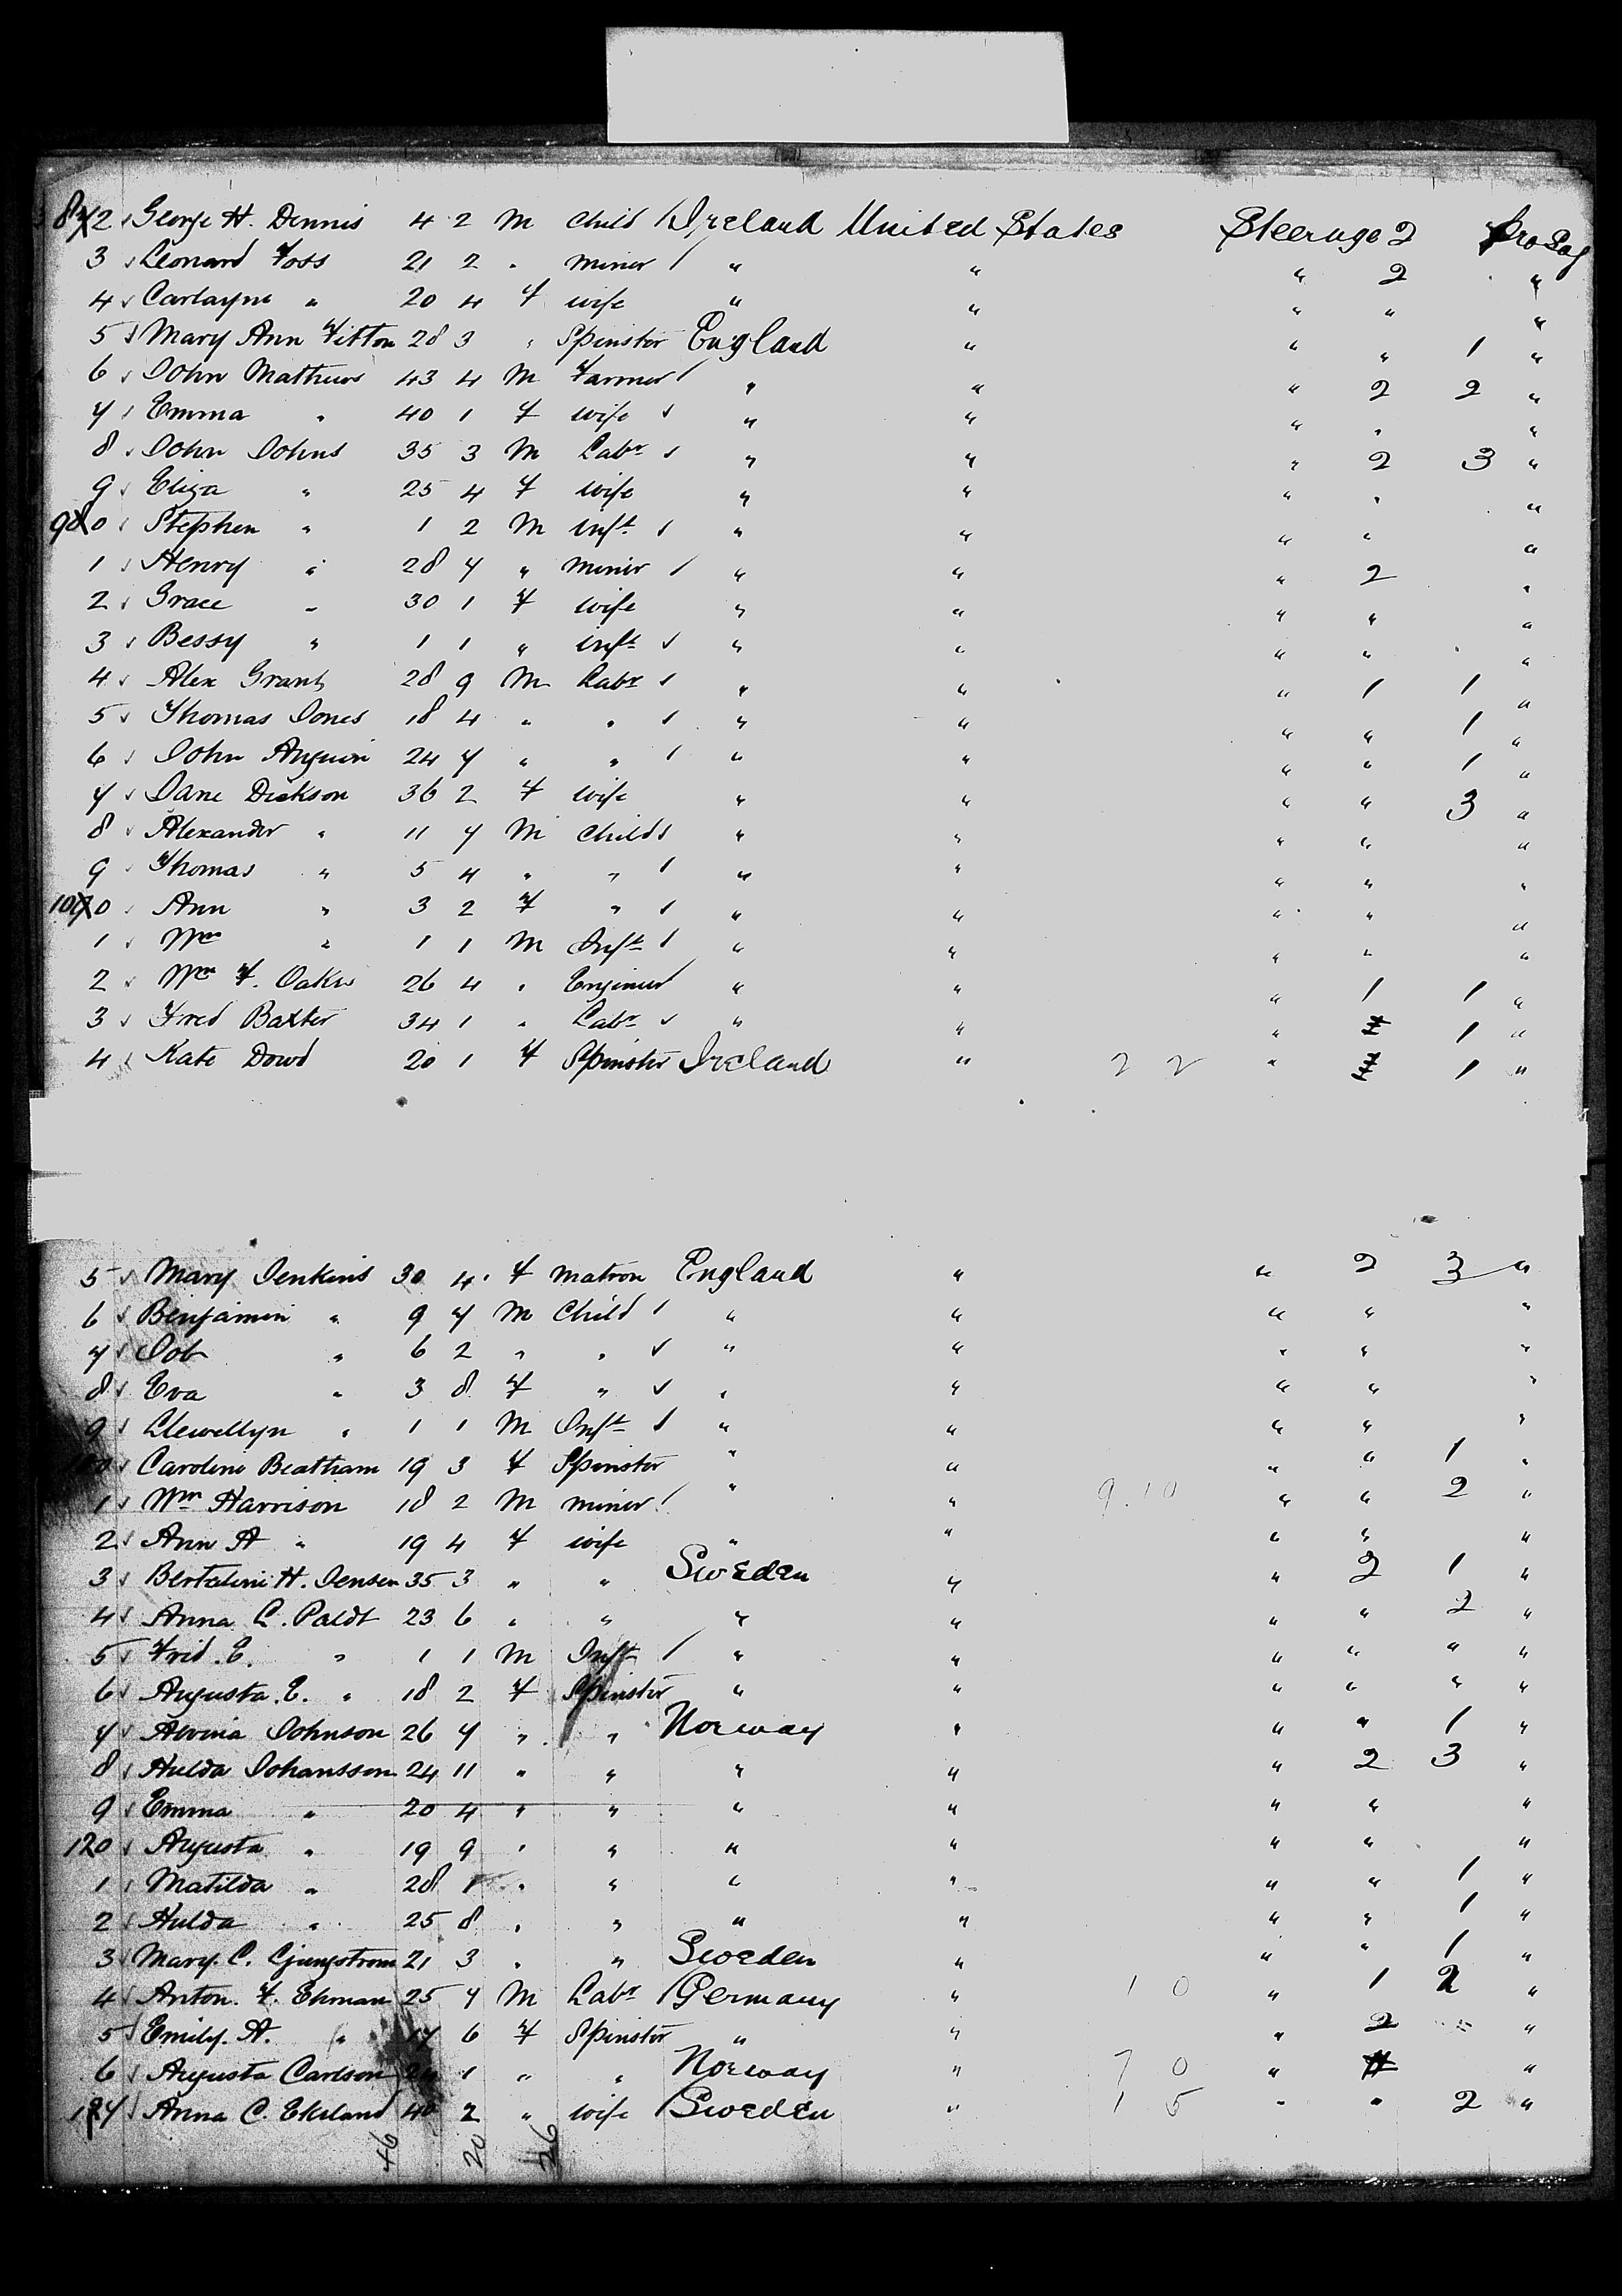 82 George H. Dennis 4 2 M Child Ireland United States Steerage 2 Pro Sag
3 Leonard Foss 21 2 " miner " " " 2 "
4 Carlayne " 20 4 F wife " " " " "
5 Mary Ann Fitton 28 3 " Spinster England " " " 1 "
6 John Mathews 43 4 M Farmer " " " 2 2 "
7 Emma " 40 1 F wife " " " " "
8 John Johns 35 3 M Labr " " " 2 3 "
9 Eliza " 25 4 F wife " " " " "
90 Stephen " 1 2 M Inft " " " " "
1 Henry " 28 7 " miner " " " 2 "
2 Grace " 30 1 F wife " " " " "
3 Bessy " 1 1 " Inft " " " " "
4 Alex Grant 28 9 M Labr " " " 1 1 "
5 Thomas Jones 18 4 " " " " " " 1 "
6 John Angwin 24 7 " " " " " " 1 "
7 Jane Dickson 36 2 F wife " " " " 3 "
8 Alexander " 11 7 M Child " " " " "
9 Thomas " 5 4 " " " " " " "
100 Ann " 3 2 F " " " " " "
1 Wm " 1 1 M Inft " " " " "
2 Wm F. Oakes 26 4 " Engineer " " " 1 1 "
3 Fred Baxter 34 1 " Labr " " " 1 "
4 Kate Dowd 20 1 F Spinster Ireland " 2 2 " 1 "
5 Mary Jenkins 30 4 F Matron England " " 2 3 "
6 Benjamin " 9 7 M Child " " " " "
7 Job " 6 2 " " " " " " "
8 Eva " 3 8 F " " " " " "
9 Llewellyn " 1 1 M Inft " " " " "
110 Caroline Beatham 19 3 F Spinster " " " " 1 "
1 Wm Harrison 18 2 M miner " " 9.10 " " 2 "
2 Ann A " 19 4 F wife " " " " "
3 Bertalini H. Jensen 35 3 " " Sweden " " 2 1 "
4 Anna L. Paldt 23 6 " " " " " " 2 "
5 Frid. E. " 1 1 M Inft " " " " " "
6 Augusta. E. " 18 2 F Spinster " " " " " "
7 Alvina Johnson 26 7 " " Norway " " " 1 "
8 Hulda Johanssen 24 11 " " " " " 2 3 "
9 Emma " 20 4 " " " " " " "
120 Augusta " 19 9 " " " " " " "
1 Matilda " 28 1 " " " " " " 1 "
2 Hulda " 25 8 " " " " " " 1 "
3 Mary. C. Ljungstrom 21 3 " " Sweden " " " 1 "
4 Anton. F. Ekman 25 7 M Labr Germany " 1 0 " 1 2 "
5 Emily. A. " 17 6 F Spinster " " " 2 " "
6 Augusta Carlson 1 " " Norway " 7 0 " "
127 Anna C. Ekelund 40 2 " wife Sweden " 1 5 " " 2 "
46 20 26